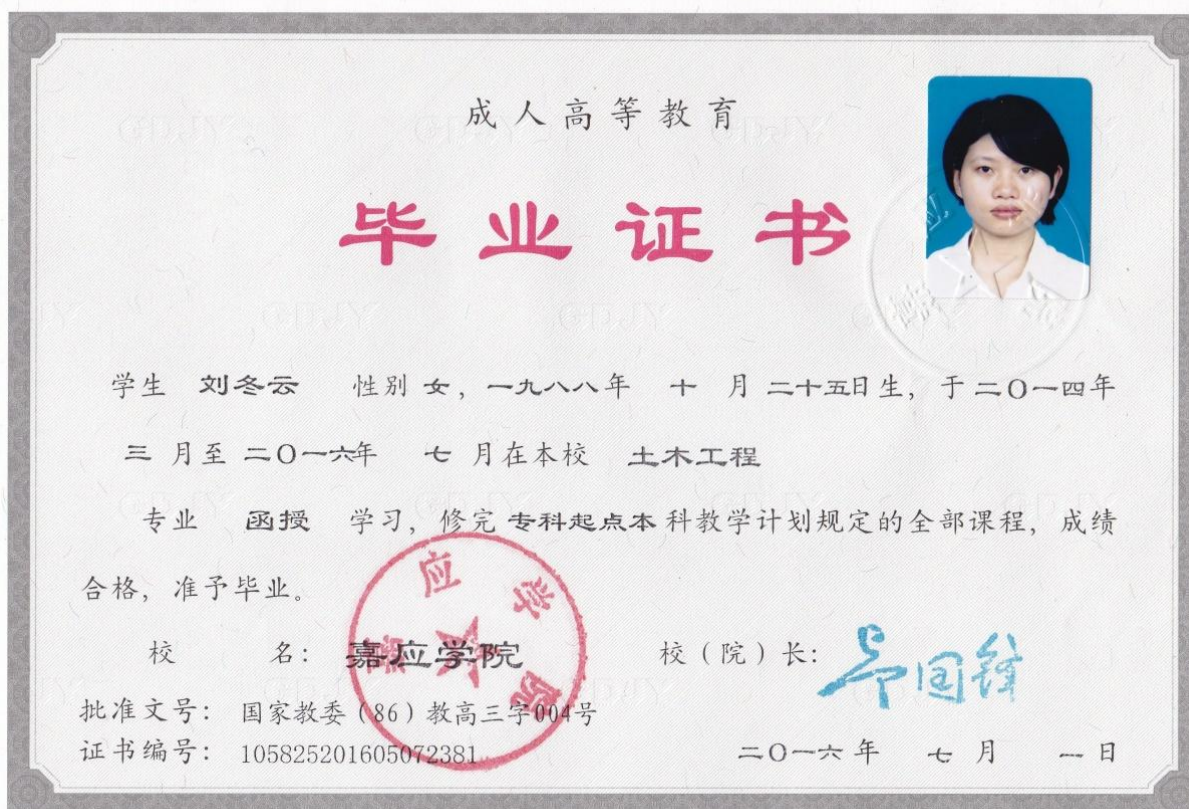 成人高等教育
毕业证书
学生 刘冬云 性别 女，一九八八年 十 月 二十五日生，于二〇一四年
三 月至 二〇一六年 七 月在本校 土木工程
专业 函授 学习，修完 专科起点本 科教学计划规定的全部课程，成绩
合格，准予毕业。
校 名： 嘉应学院 校（院）长：
批准文号： 国家教委（86）教高三字004号
证书编号： 105825201605072381 二〇一六年 七 月 一日
嘉应学院
GDJY